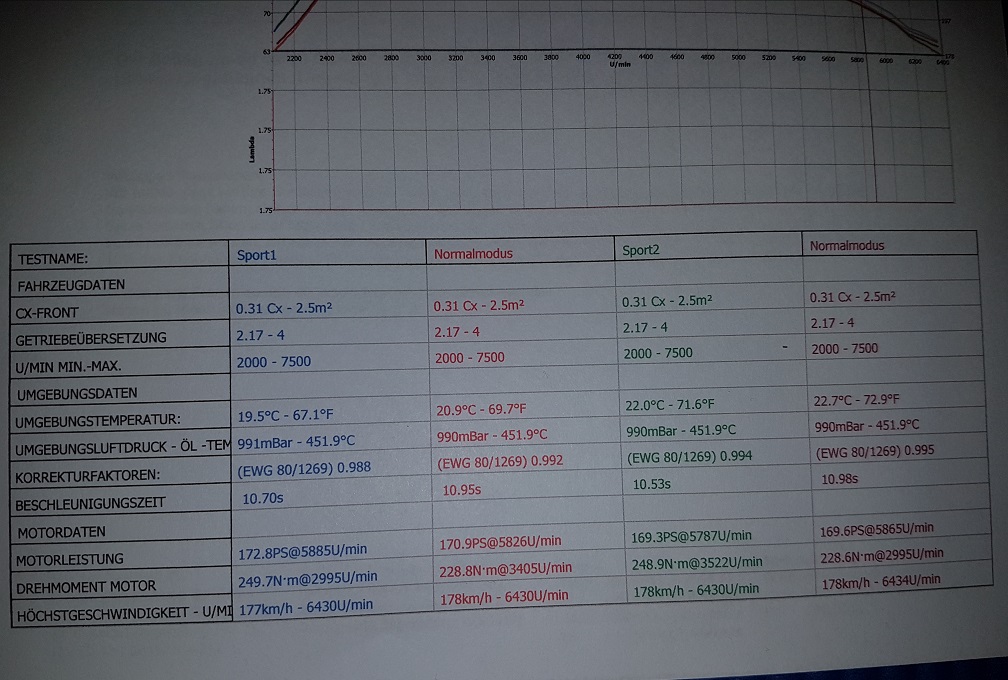 70
63
197
2200 2400 2600 2800 3000 3200 3400 3600 3800 4000 4200 4400 4600 4800 5000 5200 5400 5600 5800 6000 6200 6400
U/min
1.75
1.75
Lambda
1.75
1.75
TESTNAME: Sport1 Normalmodus Sport2 Normalmodus
FAHRZEUGDATEN
CX-FRONT 0.31 Cx - 2.5m² 0.31 Cx - 2.5m² 0.31 Cx - 2.5m² 0.31 Cx - 2.5m²
GETRIEBEÜBERSETZUNG 2.17 - 4 2.17 - 4 2.17 - 4 2.17 - 4
U/MIN MIN.-MAX. 2000 - 7500 2000 - 7500 2000 - 7500 2000 - 7500
UMGEBUNGSDATEN
UMGEBUNGSTEMPERATUR: 19.5°C - 67.1°F 20.9°C - 69.7°F 22.0°C - 71.6°F 22.7°C - 72.9°F
UMGEBUNGSLUFTDRUCK - ÖL -TEM 991mBar - 451.9°C 990mBar - 451.9°C 990mBar - 451.9°C 990mBar - 451.9°C
KORREKTURFAKTOREN: (EWG 80/1269) 0.988 (EWG 80/1269) 0.992 (EWG 80/1269) 0.994 (EWG 80/1269) 0.995
BESCHLEUNIGUNGSZEIT 10.70s 10.95s 10.53s 10.98s
MOTORDATEN
MOTORLEISTUNG 172.8PS@5885U/min 170.9PS@5826U/min 169.3PS@5787U/min 169.6PS@5865U/min
DREHMOMENT MOTOR 249.7N·m@2995U/min 228.8N·m@3405U/min 248.9N·m@3522U/min 228.6N·m@2995U/min
HÖCHSTGESCHWINDIGKEIT - U/MI 177km/h - 6430U/min 178km/h - 6430U/min 178km/h - 6430U/min 178km/h - 6434U/min